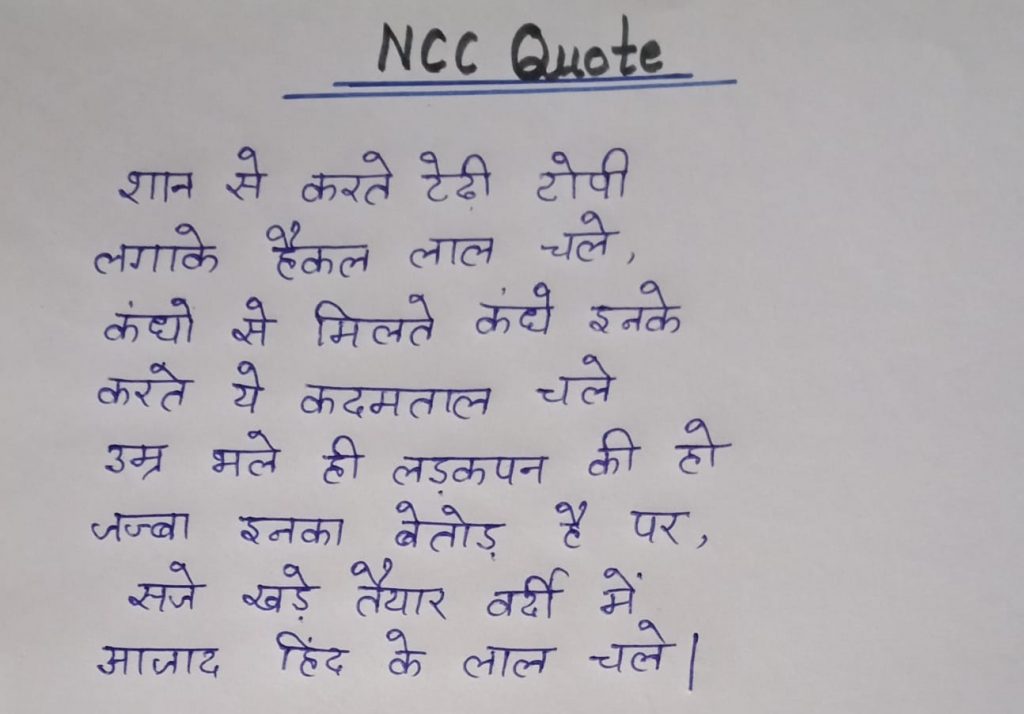 NCC Quote
शान से करते टेढ़ी टोपी
लगाके हैकल लाल चले,
कंधों से मिलते कंधे इनके
करते ये कदमताल चले
उम्र भले ही लड़कपन की हो
जज्बा इनका बेतोड़ है पर,
सजे खड़े तैयार वर्दी में
आजाद हिंद के लाल चले|